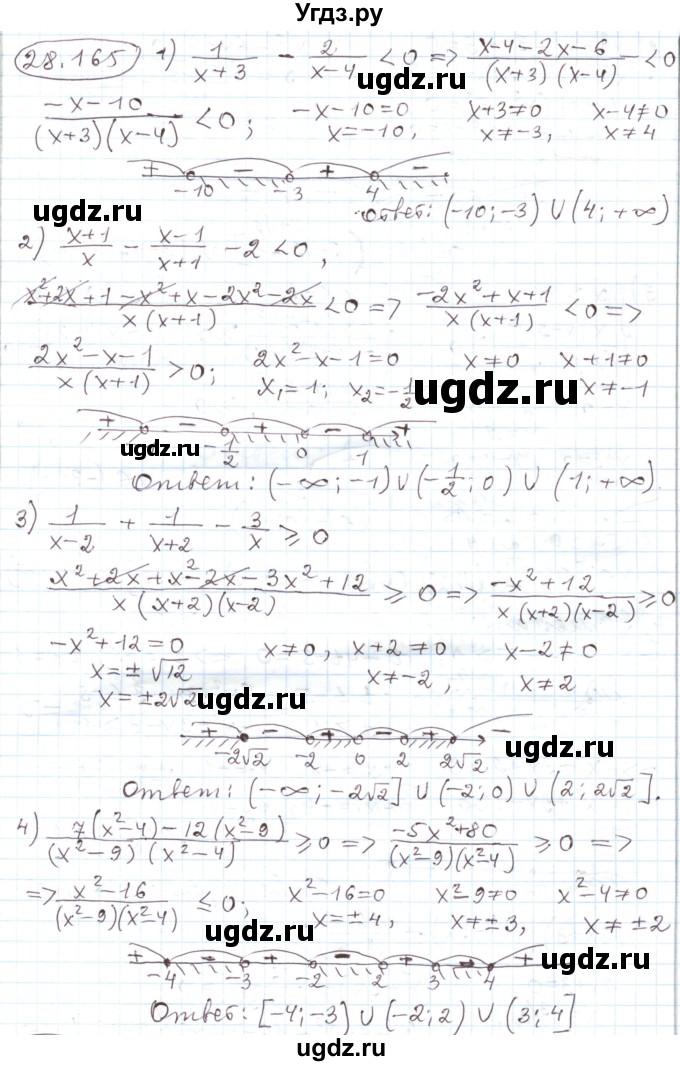 Угдз.ру
28.165 1) 1/(x+3) - 2/(x-4) < 0 => (x-4-2x-6)/((x+3)(x-4)) < 0
ugdz.ru
(-x-10)/((x+3)(x-4)) < 0; -x-10=0 x+3≠0 x-4≠0
x=-10, x≠-3, x≠4
+ - + -
-10 -3 4
Ответ: (-10;-3) ∪ (4;+∞)
ugdz.ru
2) (x+1)/x - (x-1)/(x+1) - 2 < 0,
(x²+2x+1-x²+x-2x²-2x)/(x(x+1)) < 0 => (-2x²+x+1)/(x(x+1)) < 0 =>
(2x²-x-1)/(x(x+1)) > 0; 2x²-x-1=0 x≠0 x+1≠0
x₁=1; x₂=-1/2 x≠-1
ugdz.ru
+ - + - +
ugdz.ru
-1/2 0 1
Ответ: (-∞;-1)∪(-1/2;0) ∪ (1;+∞)
3) 1/(x-2) + 1/(x+2) - 3/x ⩾ 0
(x²+2x+x²-2x-3x²+12)/(x(x+2)(x-2)) ⩾ 0 => (-x²+12)/(x(x+2)(x-2)) ⩾ 0
-x²+12=0 x≠0, x+2≠0 x-2≠0
x=±√12 x≠-2, x≠2
x=±2√2
ugdz.ru
+ - + - + -
-2√2 -2 0 2 2√2
ugdz.ru
Ответ: (-∞;-2√2] ∪ (-2;0) ∪ (2;2√2].
4) (7(x²-4)-12(x²-9))/((x²-9)(x²-4)) ⩾ 0 => (-5x²+80)/((x²-9)(x²-4)) ⩾ 0 =>
ugdz.ru
=> (x²-16)/((x²-9)(x²-4)) ≤ 0; x²-16=0 x²-9≠0 x²-4≠0
x=±4, x≠±3, x≠±2
ugdz.ru
+ - + - + - +
-4 -3 -2 2 3 4
Ответ: [-4;-3) ∪ (-2;2) ∪ (3;4]
ugdz.ru